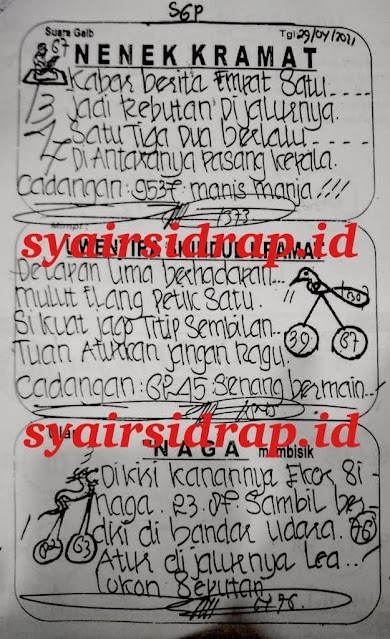 SGP
Suara Gaib Tgl 29/04/2021
67
NENEK KRAMAT
Kabar berita Empat Satu
Jadi Rebutan Di jalurnya.
Satu Tiga Dua berlalu
Di Antaranya Pasang Kepala.
Cadangan: 9537. manis manja !!!
1373
syairsidrap.id
KRAMAT
Delapan Lima berhadapan...
mulut Elang Petik Satu.
Si kuat jago Titip Sembilan..
Tuan Aturkan jangan Ragu.
39 87
Cadangan: 6245. Senang bermain..
syairsidrap.id
NAGA membisik
Dikiki kanannya Ekor Si
naga. 23. Sambil ber
diri di bandar udara. 76
63
Atur di jalurnya Lea
Lokon Seputan